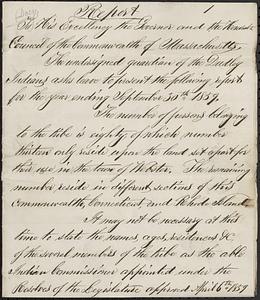 Report 1
To His Excellency the Governor and the Honorable
Council of the Commonwealth of Massachusetts.
The undersigned guardian of the Dudley
Indians, asks leave to present the following report
for the year ending September 30th 1859.
The number of persons belonging
to the tribe is eighty, of which number
thirteen only reside upon the land set apart for
their use in the town of Webster. The remaining
number reside in different sections of this
commonwealth, Connecticut and Rhode Island.
It may not be necessary at this
time to state the names, ages, residences &c.
of the several members of the tribe as the able
Indian Commissioner appointed under the
Resolves of the Legislature approved April 6th 1859